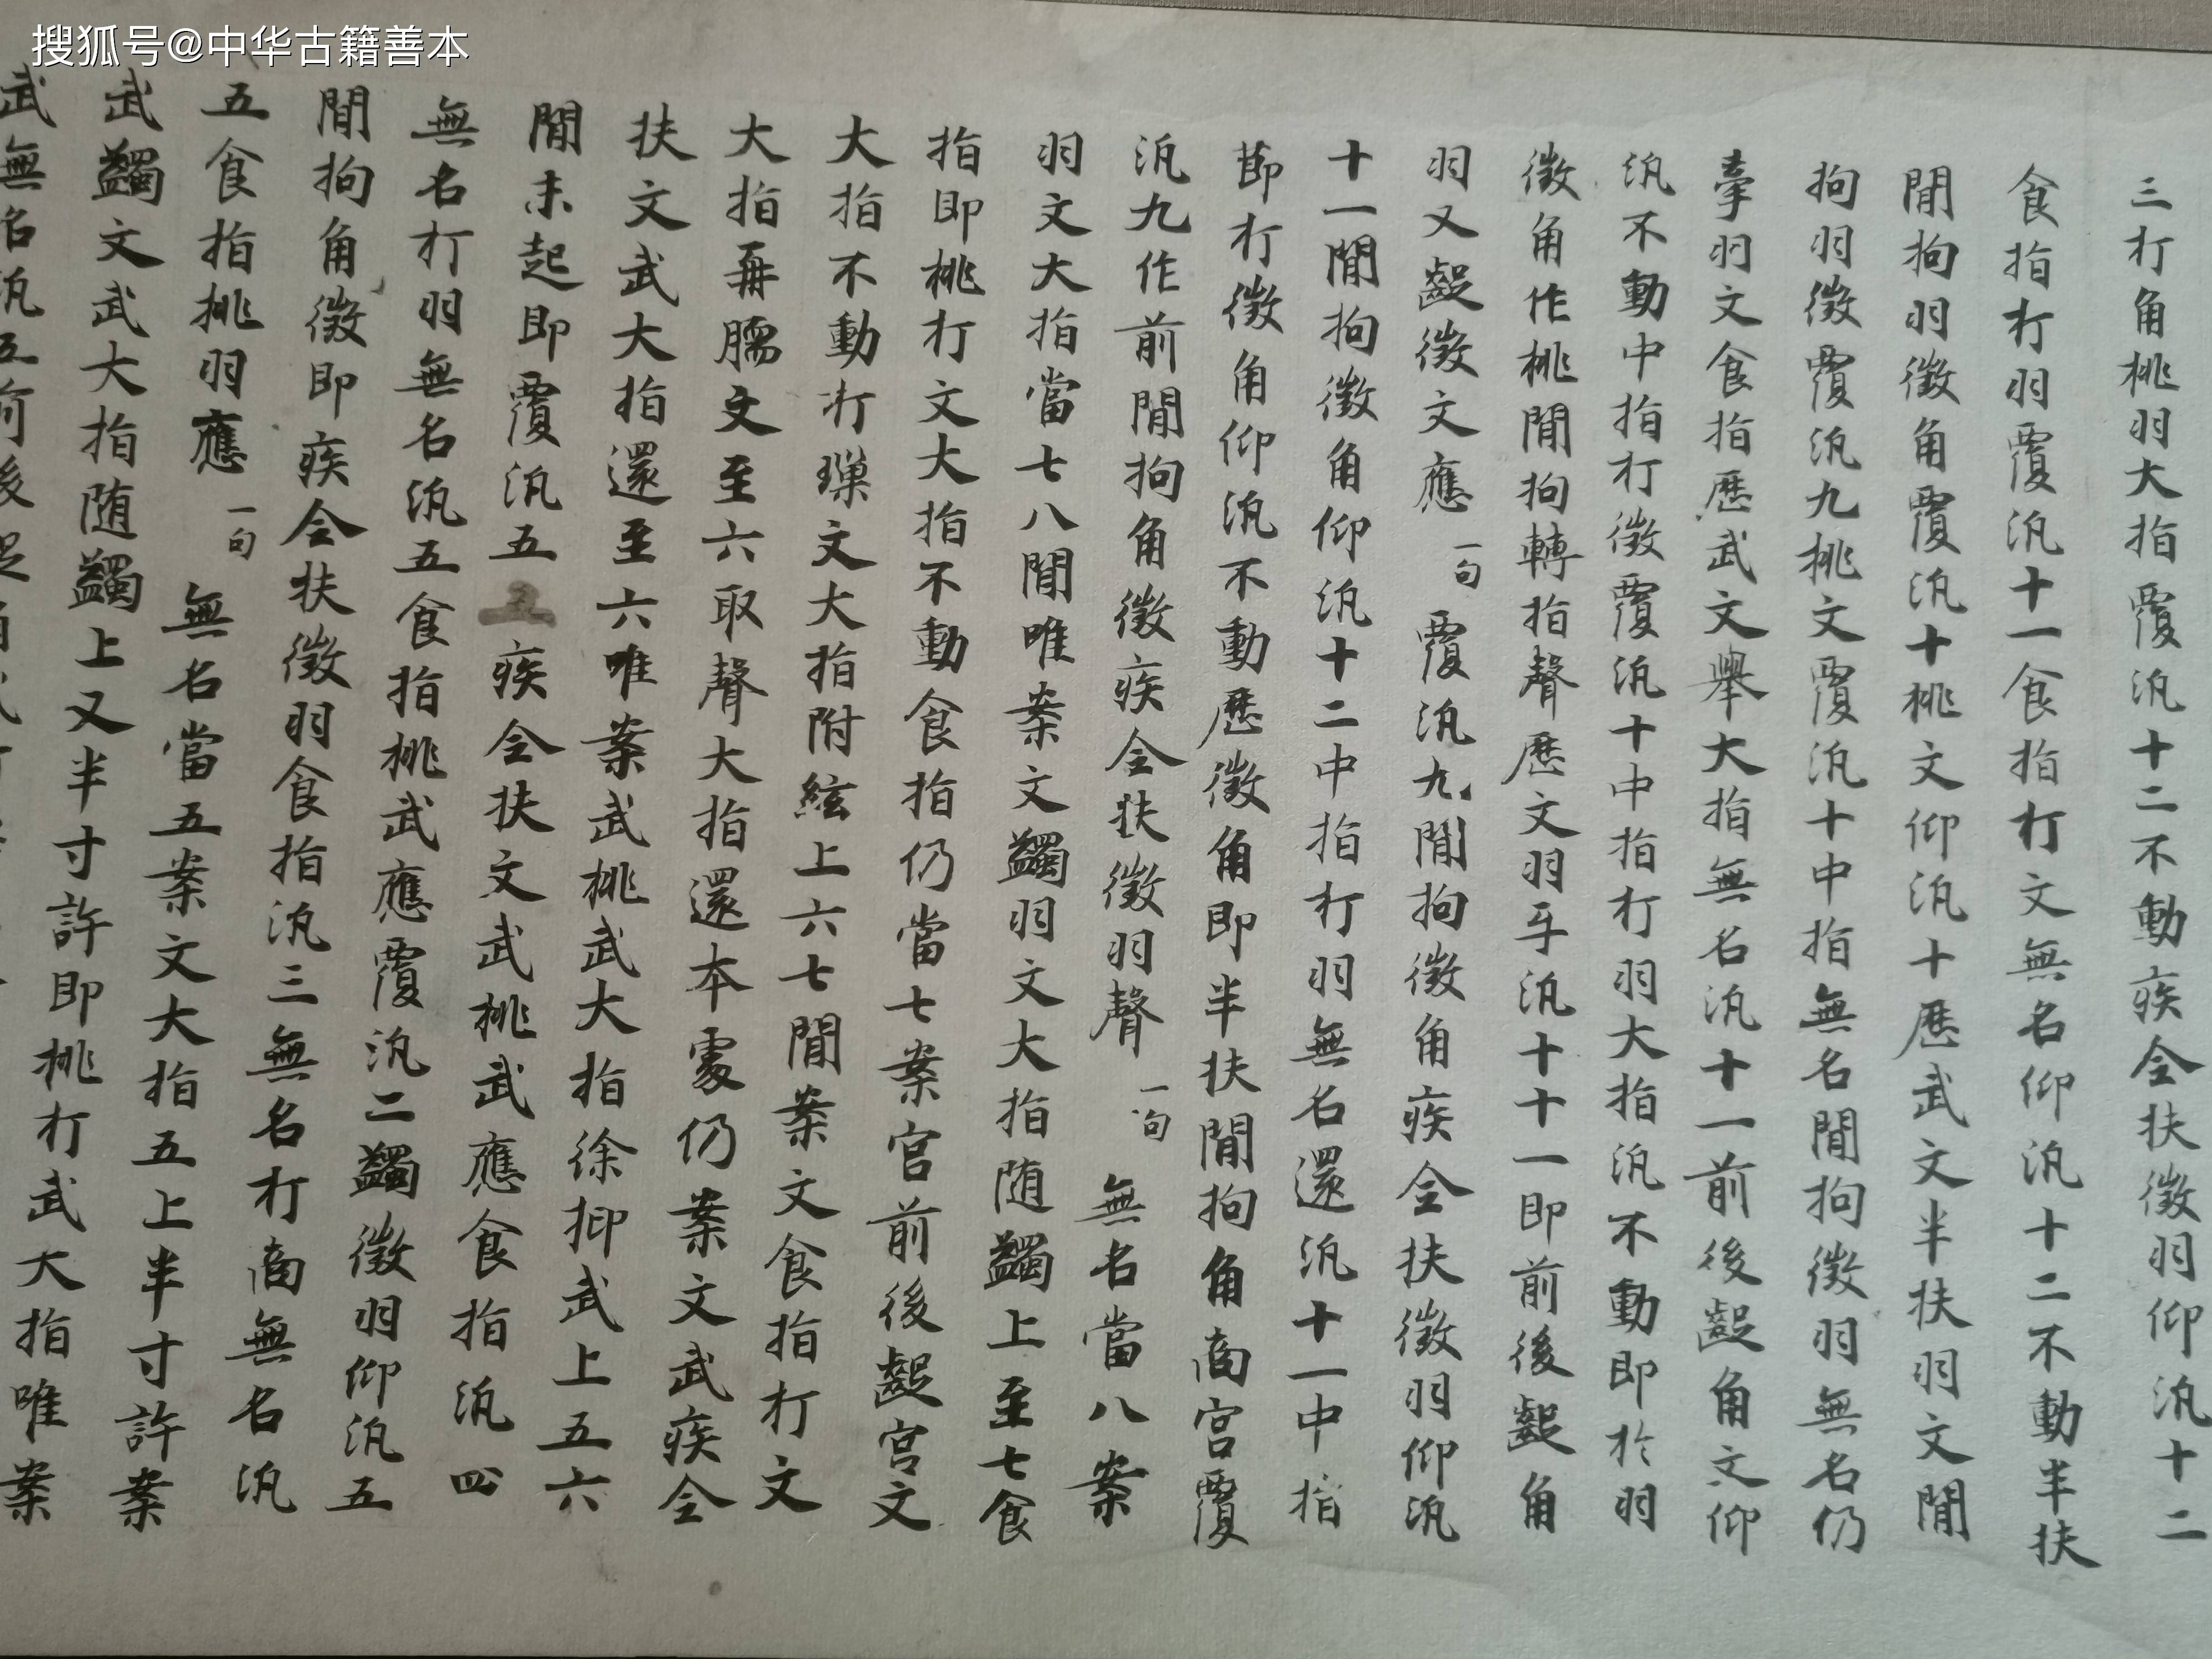 搜狐号@中华古籍善本
三打角桃羽大指覆汎十二不動疾全扶徵羽仰汎十二
食指打羽覆汎十一食指打文無名仰汎十二不動半扶
閒拘羽徵角覆汎十桃文仰汎十歷武文半扶羽文閒
拘羽徵覆汎九桃文覆汎十中指無名閒拘徵羽無名仍
牽羽文食指歷武文舉大指無名汎十一前後齪角文仰
汎不動中指打徵覆汎十中指打羽大指汎不動即於羽
徵角作桃閒拘轉指聲歷文羽汎十十一即前後齪角
羽又齪徵文應一句覆汎九閒拘徵角疾全扶徵羽仰汎
十一閒拘徵角仰汎十二中指打羽無名還汎十一中指
節打徵角仰汎不動歷徵角即半扶閒拘角商宮覆
汎九作前閒拘角徵疾全扶徵羽聲一句無名當八案
羽文大指當七八閒唯案文蠲羽文大指随蠲上至七食
指即桃打文大指不動食指仍當七案宮前後齪宮文
大指不動打文大指附絃上六七閒案文食指打文
大指再臑文至六取聲大指還本處仍案文武疾全
扶文武大指還至六唯案武桃武大指徐抑武上五六
閒未起即覆汎五疾全扶文武桃武應食指汎四
無名打羽無名汎五食指桃武應覆汎二蠲徵羽仰汎五
閒拘角徵即疾全扶徵羽食指汎三無名打商無名汎
五食指桃羽應一句無名當五案文大指五上半寸許案
武蠲文武大指随蠲上又半寸許即桃打武大指唯案
武無名汎五前後